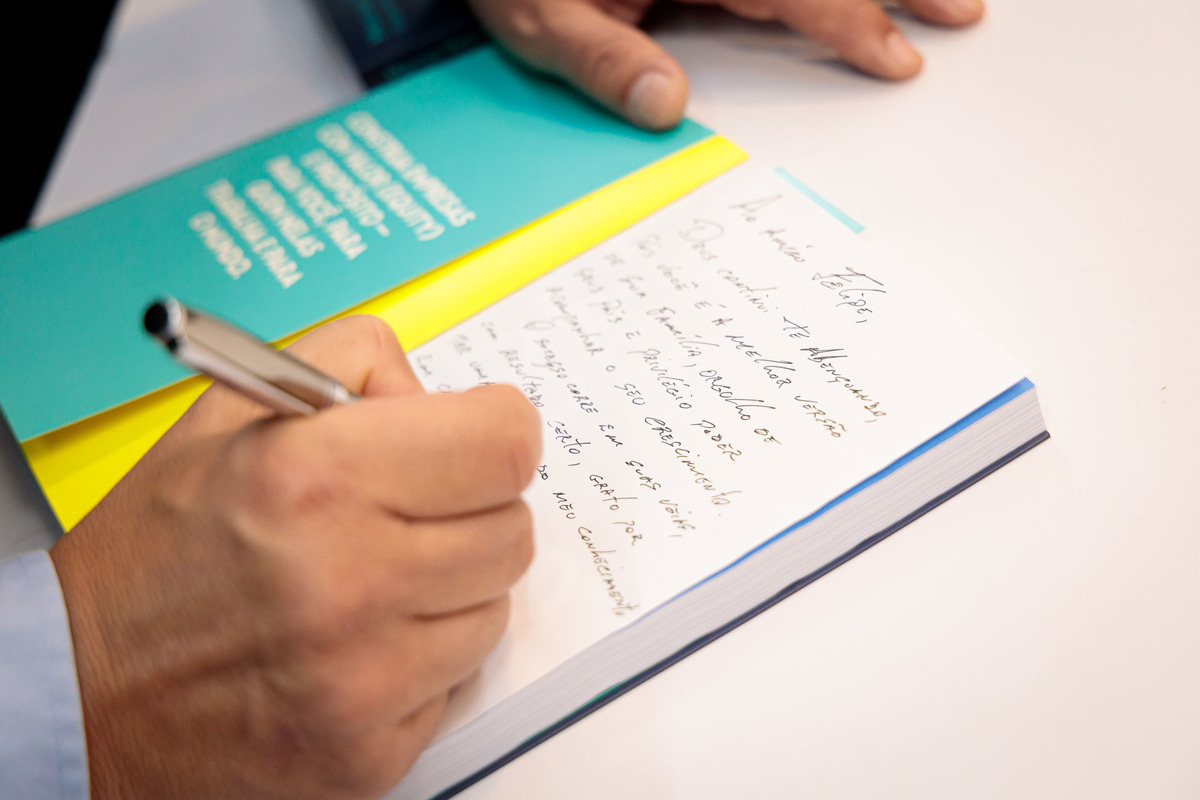 CONSTRUA EMPRESAS
COM VALOR (EQUITY)
E PROPÓSITO—
PARA VOCÊ, PARA
QUEM NELAS
TRABALHA E PARA
O MUNDO.
Ao amigo Felipe,
Deus continui te abençoando,
pois você é a melhor versão
de sua família, orgulho de
seus pais e privilégio poder
acompanhar o seu crescimento.
em suas veias,
com resultado certo, grato por
do meu conhecimento